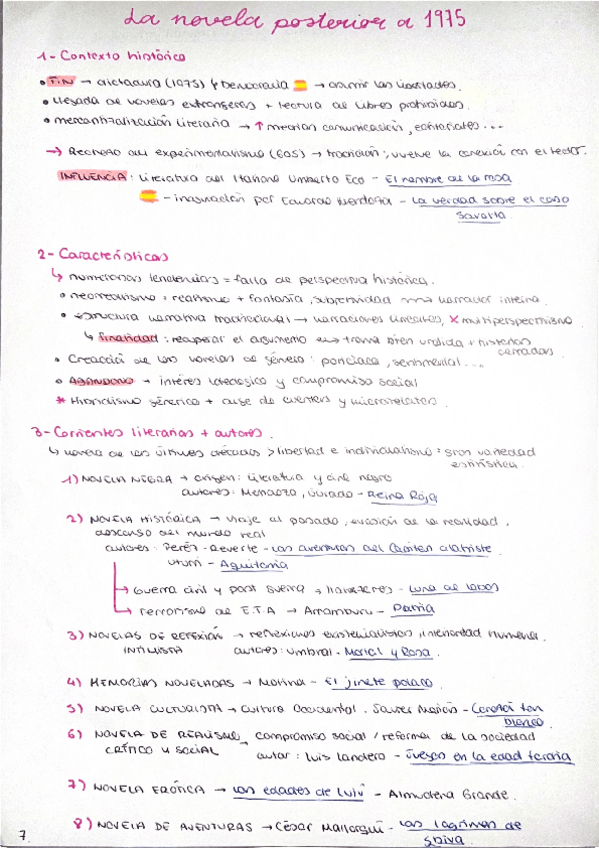 La novela posterior a 1975
1- Contexto histórico
• FIN → dictadura (1975) y Democracia → asumir las libertades.
• llegada de novelas extranjeras + lectura de libros prohibidos.
• mercantilización literaria → ↑ medios comunicación, editoriales...
→ Rechazo del experimentalismo (60S) → tradición; vuelve la conexión con el lector.
INFLUENCIA: literatura del italiano Umberto Eco - El nombre de la rosa
- inauguración por Eduardo Mendoza - La verdad sobre el caso
Savolta.
2- Características
↳ numerosas tendencias = falta de perspectiva histórica.
• neorrealismo = realismo + fantasía, subjetividad → narrador interno.
• estructura narrativa tradicional → narraciones lineales, × multiperspectivismo
↳ finalidad: recuperar el argumento → trama bien urdida + historias
cerradas
• Creación de las novelas de género: policiaca, sentimental...
• Abandono → interés ideológico y compromiso social
* Hibridismo genérico + auge de cuentos y microrrelatos.
3- Corrientes literarias + autores.
↳ novela de las últimas décadas > libertad e individualismo = gran variedad
estilística.
1) NOVELA NEGRA → origen: literatura y cine negro
autores: Mendoza, Jurado - Reina Roja
2) NOVELA HISTÓRICA → viaje al pasado, evasión de la realidad,
descanso del mundo real
autores: Peréz-Reverte - Las aventuras del Capitán Alatriste
Uturri - Aquitania
→ Guerra civil y post guerra → - Luna de lobos
→ Terrorismo de E.T.A → Arramburu - Patria
3) NOVELAS DE REFLEXIÓN → reflexiones existencialistas, interioridad humana.
INTIMISTA autores: Umbral - Mortal y Rosa.
4) MEMORIAS NOVELADAS → Molina - El jinete polaco
5) NOVELA CULTURISTA → Cultura Occidental. Javier Marías - Corazón tan
blanco
6) NOVELA DE REALISMO compromiso social / reformar de la sociedad
CRÍTICO Y SOCIAL autor: Luis Landero - Juegos en la edad tardía
7) NOVELA ERÓTICA → Las edades de Lulú - Almudena Grande.
8) NOVELA DE AVENTURAS → César Mallorquí - Las lágrimas de
Shiva.
7